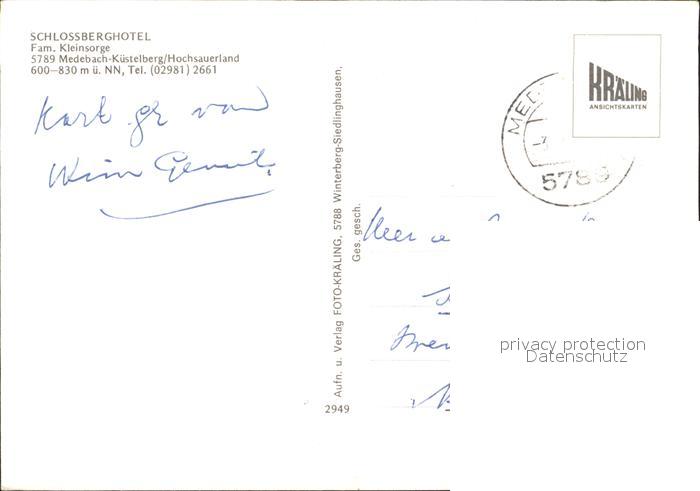 SCHLOSSBERGHOTEL
Fam. Kleinsorge
5789 Medebach-Küstelberg/Hochsauerland
600—830 m ü. NN, Tel. (02981) 2661
Kart
van
Wim
Aufn. u. Verlag FOTO-KRÄLING, 5788 Winterberg-Siedlinghausen,
Ges. gesch.
2949
KRÄLING
ANSICHTSKARTEN
MED
5789
privacy protection
Datenschutz